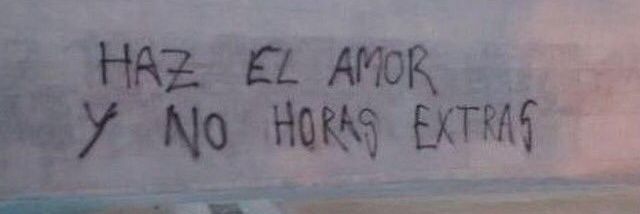 HAZ EL AMOR
Y NO HORAS EXTRAS